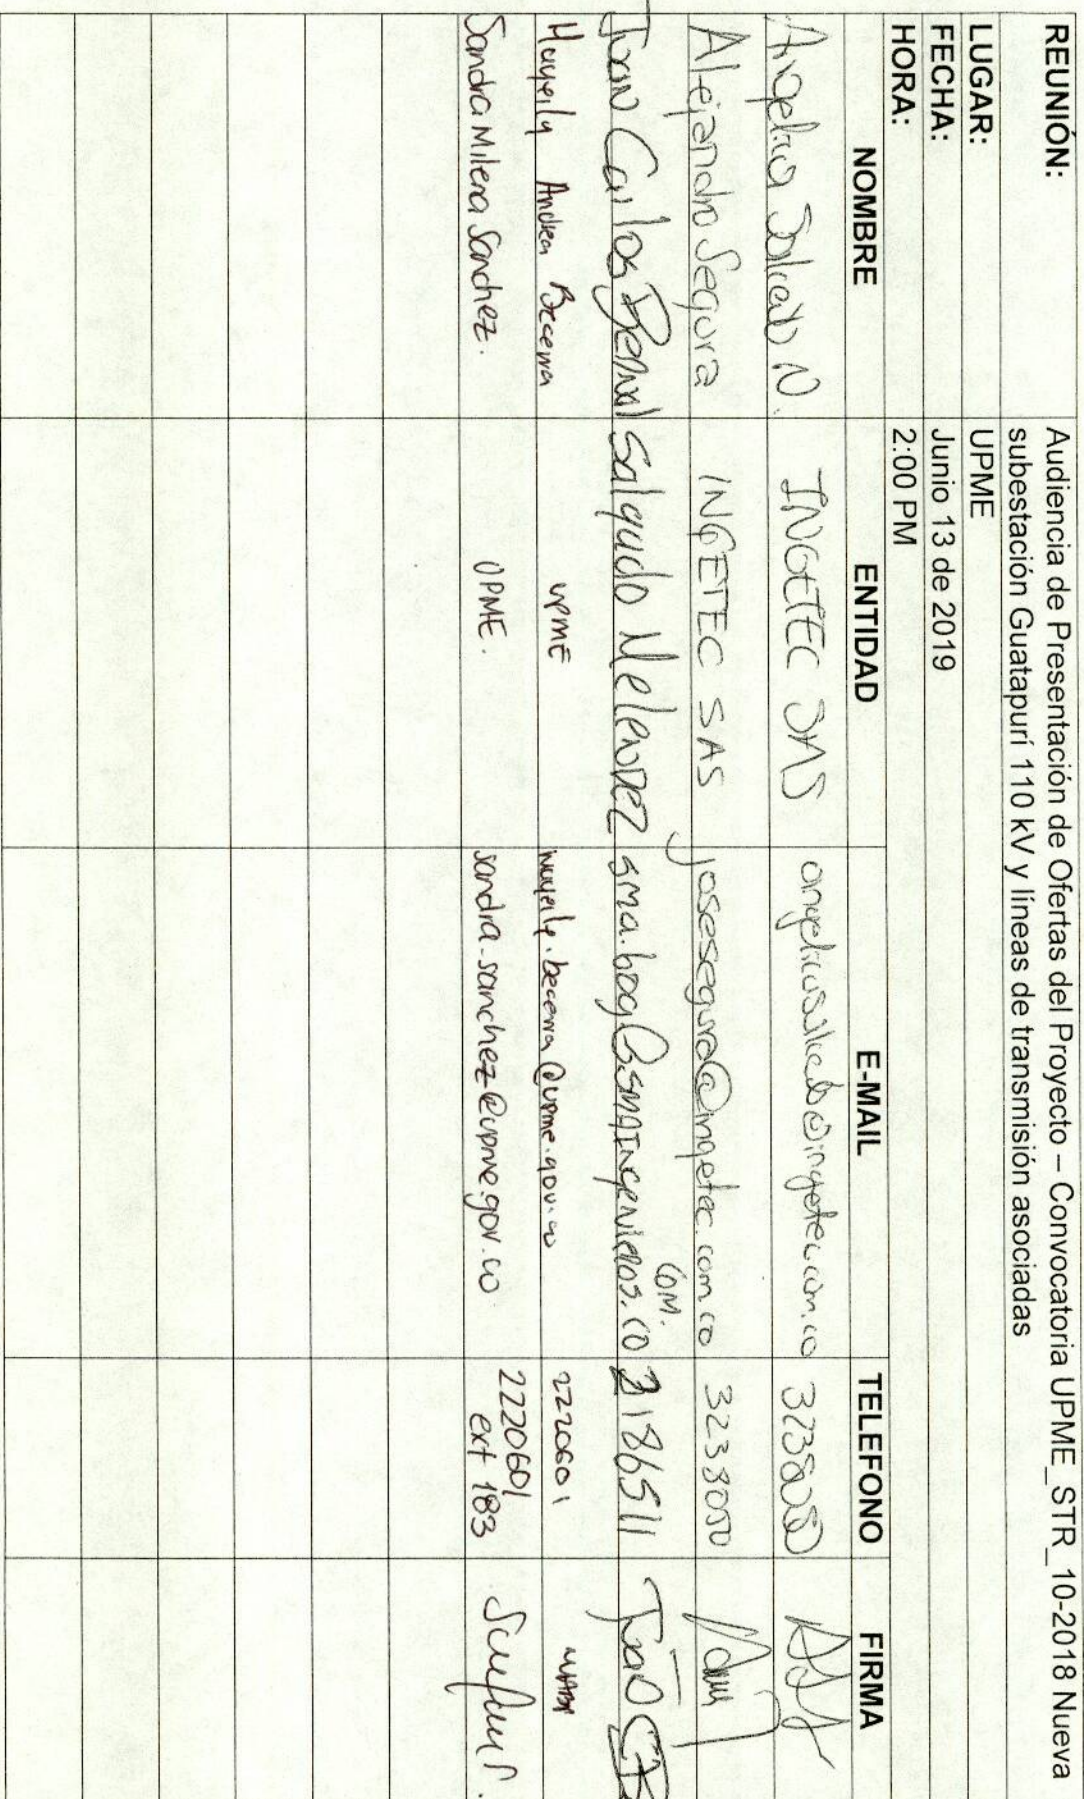 REUNIÓN: Audiencia de Presentación de Ofertas del Proyecto – Convocatoria UPME_STR_10-2018 Nueva
subestación Guatapurí 110 kV y líneas de transmisión asociadas
LUGAR: UPME
FECHA: Junio 13 de 2019
HORA: 2:00 PM
NOMBRE ENTIDAD E-MAIL TELEFONO FIRMA
Angelica Salcedo N. INGETEC SAS angelicasalcedo@ingetec.com.co 3238050
Alejandro Segura INGETEC SAS josesegura@ingetec.com.co 3238050
Juan Carlos Bernal Salgado Melendez sma.bog@smaingenieros.com.co 2186511
Mayerly Andrea Becerra upme mayerly.becerra@upme.gov.co 2220601
Sandra Milena Sanchez. UPME. sandra.sanchez@upme.gov.co 2220601
ext 183